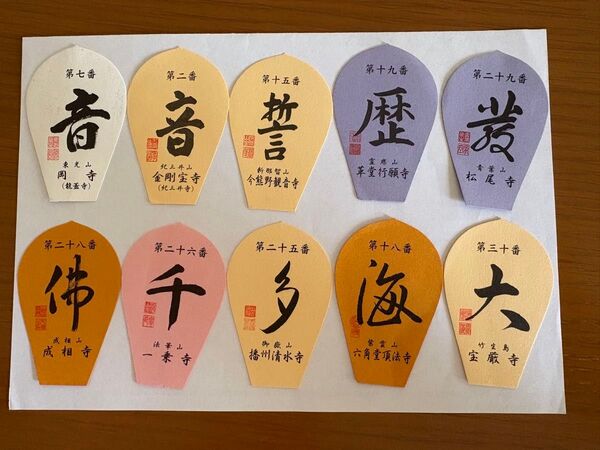 第七番
音
東光山
岡寺
(龍蓋寺)
第二番
音
紀三井山
金剛宝寺
(紀三井寺)
第十五番
誓
新那智山
今熊野観音寺
第十九番
歴
霊麀山
革堂行願寺
第二十九番
發
青葉山
松尾寺
第二十八番
佛
成相山
成相寺
第二十六番
千
法華山
一乗寺
第二十五番
多
御嶽山
播州清水寺
第十八番
海
紫雲山
六角堂頂法寺
第三十番
大
竹生島
宝厳寺